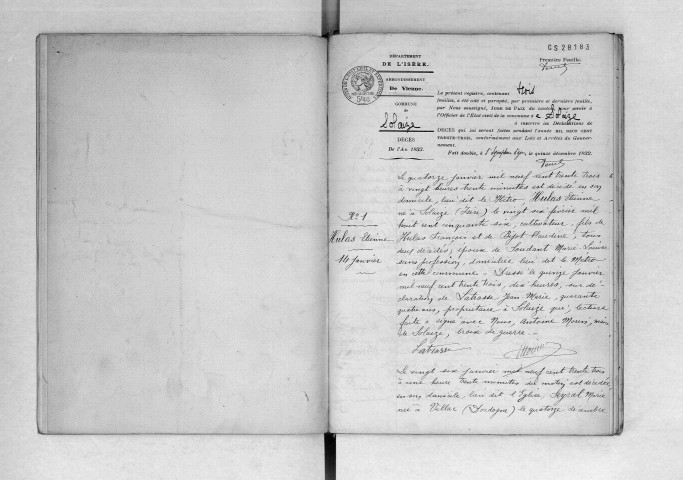 CS28183
Première Feuille.
DÉPARTEMENT
DE L'ISÈRE.
ARRONDISSEMENT
De Vienne.
COMMUNE
de
Solaize
DÉCÈS
De l'An 1933.
Le présent registre, contenant trois
feuilles, a été coté et paraphé, par première et dernière feuille,
par Nous soussigné, JUGE DE PAIX du canton, pour servir à
l'Officier de l'État civil de la commune d e Solaize
à inscrire les Déclarations de
DÉCÈS qui lui seront faites pendant l'année MIL NEUF CENT
TRENTE-TROIS, conformément aux Lois et Arrêtés du Gouver-
nement.
Fait double, à St Symphorien d'Ozon, le quinze décembre 1932.
No 1
Hulas Etienne
14 Janvier
Le quatorze janvier mil neuf cent trente trois
à vingt heures trente minutes est décédé en son
domicile, lieu dit le Métro, Hulas Etienne
né à Solaize (Isère) le vingt six février mil
huit cent cinquante six, cultivateur, fils de
Hulas François et de Claudine, tous
deux décédés; époux de Soudant Marie Louise
sans profession, domiciliée lieu dit le Métro
en cette commune. - Dressé le quinze janvier
mil neuf cent trente trois, dix heures, sur dé-
claration de Latrasse Jean Marie, quarante
quatre ans, propriétaire à Solaize qui, lecture
faite a signé avec Nous, Antoine Morin, maire
de Solaize, croix de guerre. -
Latrasse
Le vingt six janvier mil neuf cent trente trois
à une heure trente minutes du matin, est décédée
en son domicile, lieu dit l'Eglise, Seyrat Marie
née à Villac (Dordogne) le quatorze décembre